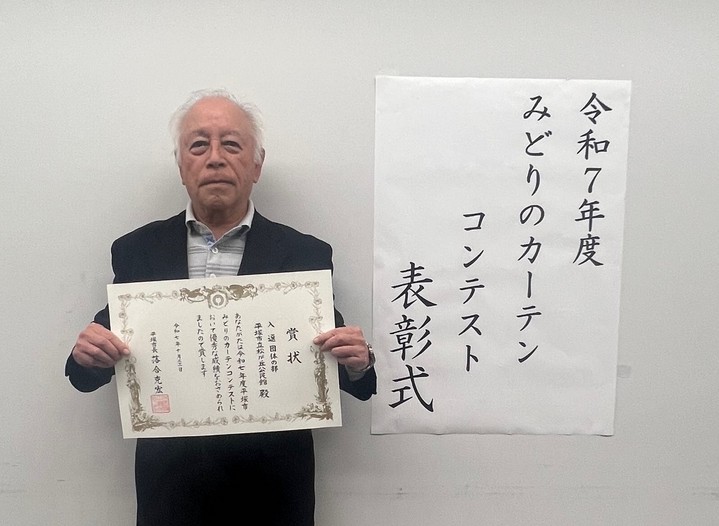 令和7年度
みどりのカーテン
コンテスト
表彰式
賞状
入選団体の部
平塚市立松が丘公民館 殿
あなたがたは令和七年度平塚市
みどりのカーテンコンテストに
おいて優秀な成績をおさめられ
ましたので賞します
平塚市長 落合克宏